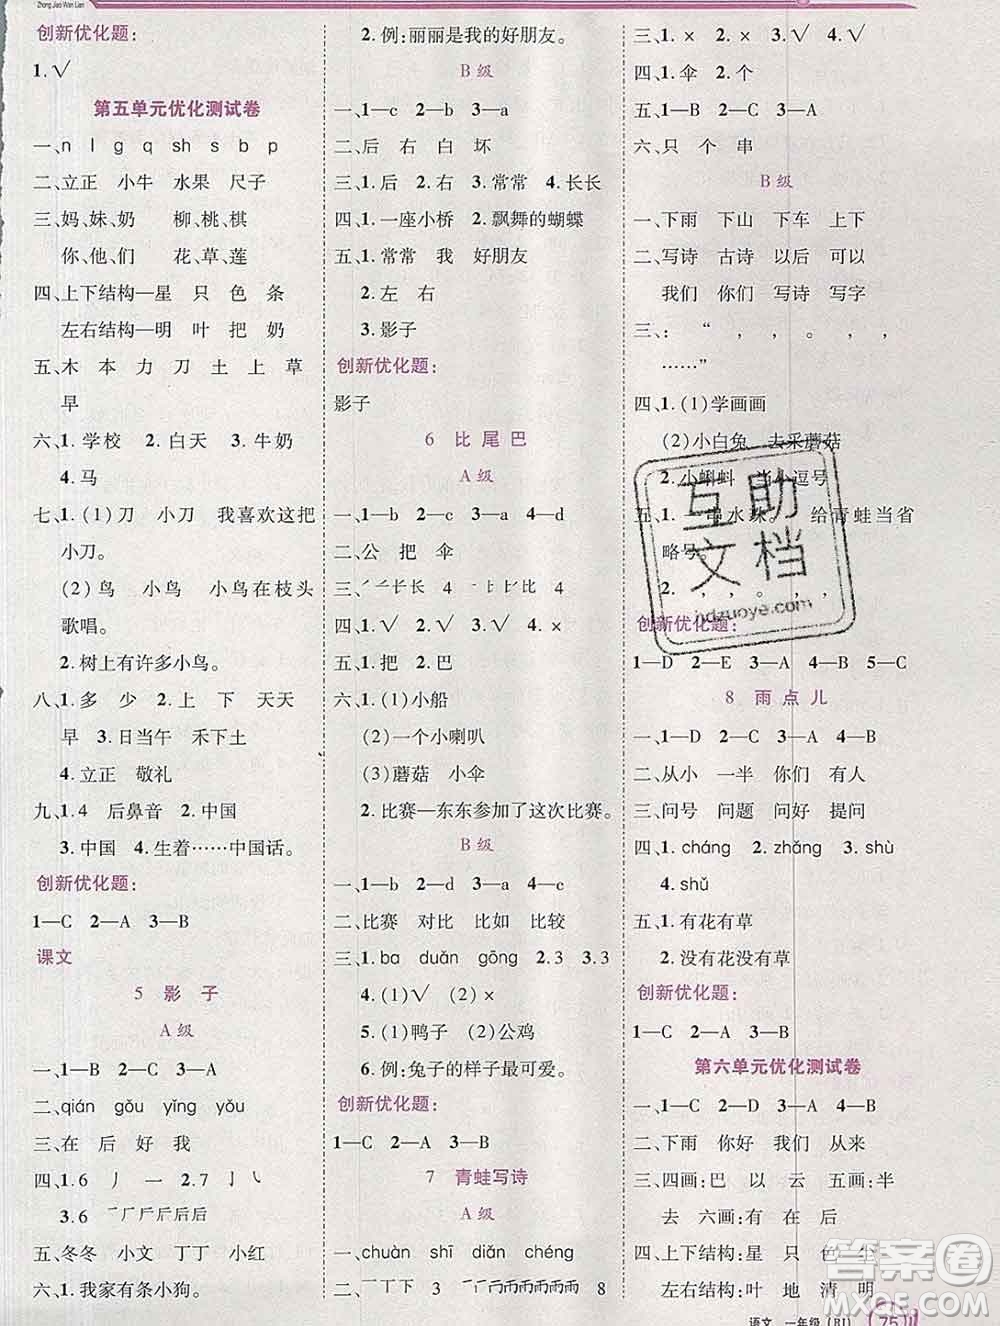 Zhong Jiao Wan Lian
创新优化题:
1. √
第五单元优化测试卷
一、n l g q sh s b p
二、立正 小牛 水果 尺子
三、妈、妹、奶 柳、桃、棋
你、他、们 花、草、莲
四、上下结构—星 只 色 条
左右结构—明 叶 把 奶
五、木 本 力 刀 土 上 草
早
六、1. 学校 2. 白天 3. 牛奶
4. 马
七、1. (1) 刀 小刀 我喜欢这把
小刀。
(2) 鸟 小鸟 小鸟在枝头
歌唱。
2. 树上有许多小鸟。
八、1. 多 少 2. 上 下 天天
早 3. 日当午 禾下土
4. 立正 敬礼
九、1. 4 后鼻音 2. 中国
3. 中国 4. 生着……中国话。
创新优化题:
1—C 2—A 3—B
课文
5 影 子
A 级
一、1—B 2—A 3—C
二、qián gǒu yǐng yǒu
三、在 后 好 我
四、1. 6 丿 一 2. 7 亅 乚
3. 6
五、冬冬 小文 丁丁 小红
六、1. 我家有条小狗。
2. 例:丽丽是我的好朋友。
B 级
一、1—c 2—b 3—a
二、后 右 白 坏
三、1. 后 2. 右 3. 常常 4. 长长
四、1. 一座小桥 2. 飘舞的蝴蝶
五、1. 常常 我 好朋友
2. 左 右
3. 影子
创新优化题:
影子
6 比 尾 巴
A 级
一、1—b 2—c 3—a 4—d
二、公 把 伞
三、 4 4
四、1. √ 2. √ 3. √ 4. ×
五、1. 把 2. 巴
六、1. (1) 小船
(2) 一个小喇叭
(3) 蘑菇 小伞
2. 比赛—东东参加了这次比赛。
B 级
一、1—b 2—d 3—a 4—c
二、比赛 对比 比如 比较
三、1. ba duǎn gōng 2. 3 3. 3
4. (1) √ (2) ×
5. (1) 鸭子 (2) 公鸡
6. 例:兔子的样子最可爱。
创新优化题:
1—C 2—A 3—B
7 青蛙写诗
A 级
一、chuàn shī diǎn chéng
二、 3 8
三、1. × 2. × 3. √ 4. √
四、1. 伞 2. 个
五、1—B 2—C 3—A
六、只 个 串
B 级
一、下雨 下山 下车 上下
二、写诗 古诗 以后 可以
我们 你们 写诗 写字
三、: “ , , 。 ,
……”
四、1. (1) 学画画
(2) 小白兔 去采蘑菇
2. 小蝌蚪 当小逗号
五、1. 串水珠。 给青蛙当省
略号。
2. , , 。 , ,
创新优化题:
1—D 2—E 3—A 4—B 5—C
8 雨 点 儿
一、1—D 2—C 3—A 4—B
二、从小 一半 你们 有人
三、问号 问题 问好 提问
四、1. cháng 2. zhǎng 3. shù
4. shǔ
五、1. 有花有草
2. 没有花没有草
创新优化题:
1—C 2—A 3—B
第六单元优化测试卷
一、1—B 2—D 3—A 4—C
二、下雨 你好 我们 从来
三、四画:巴 以 云 五画:半
去 六画:有 在 后
四、上下结构:星 只 色
左右结构:叶 地 清 明
语文 一年级 (RJ) 75
互助文档
hdzuoye.com
答案圈